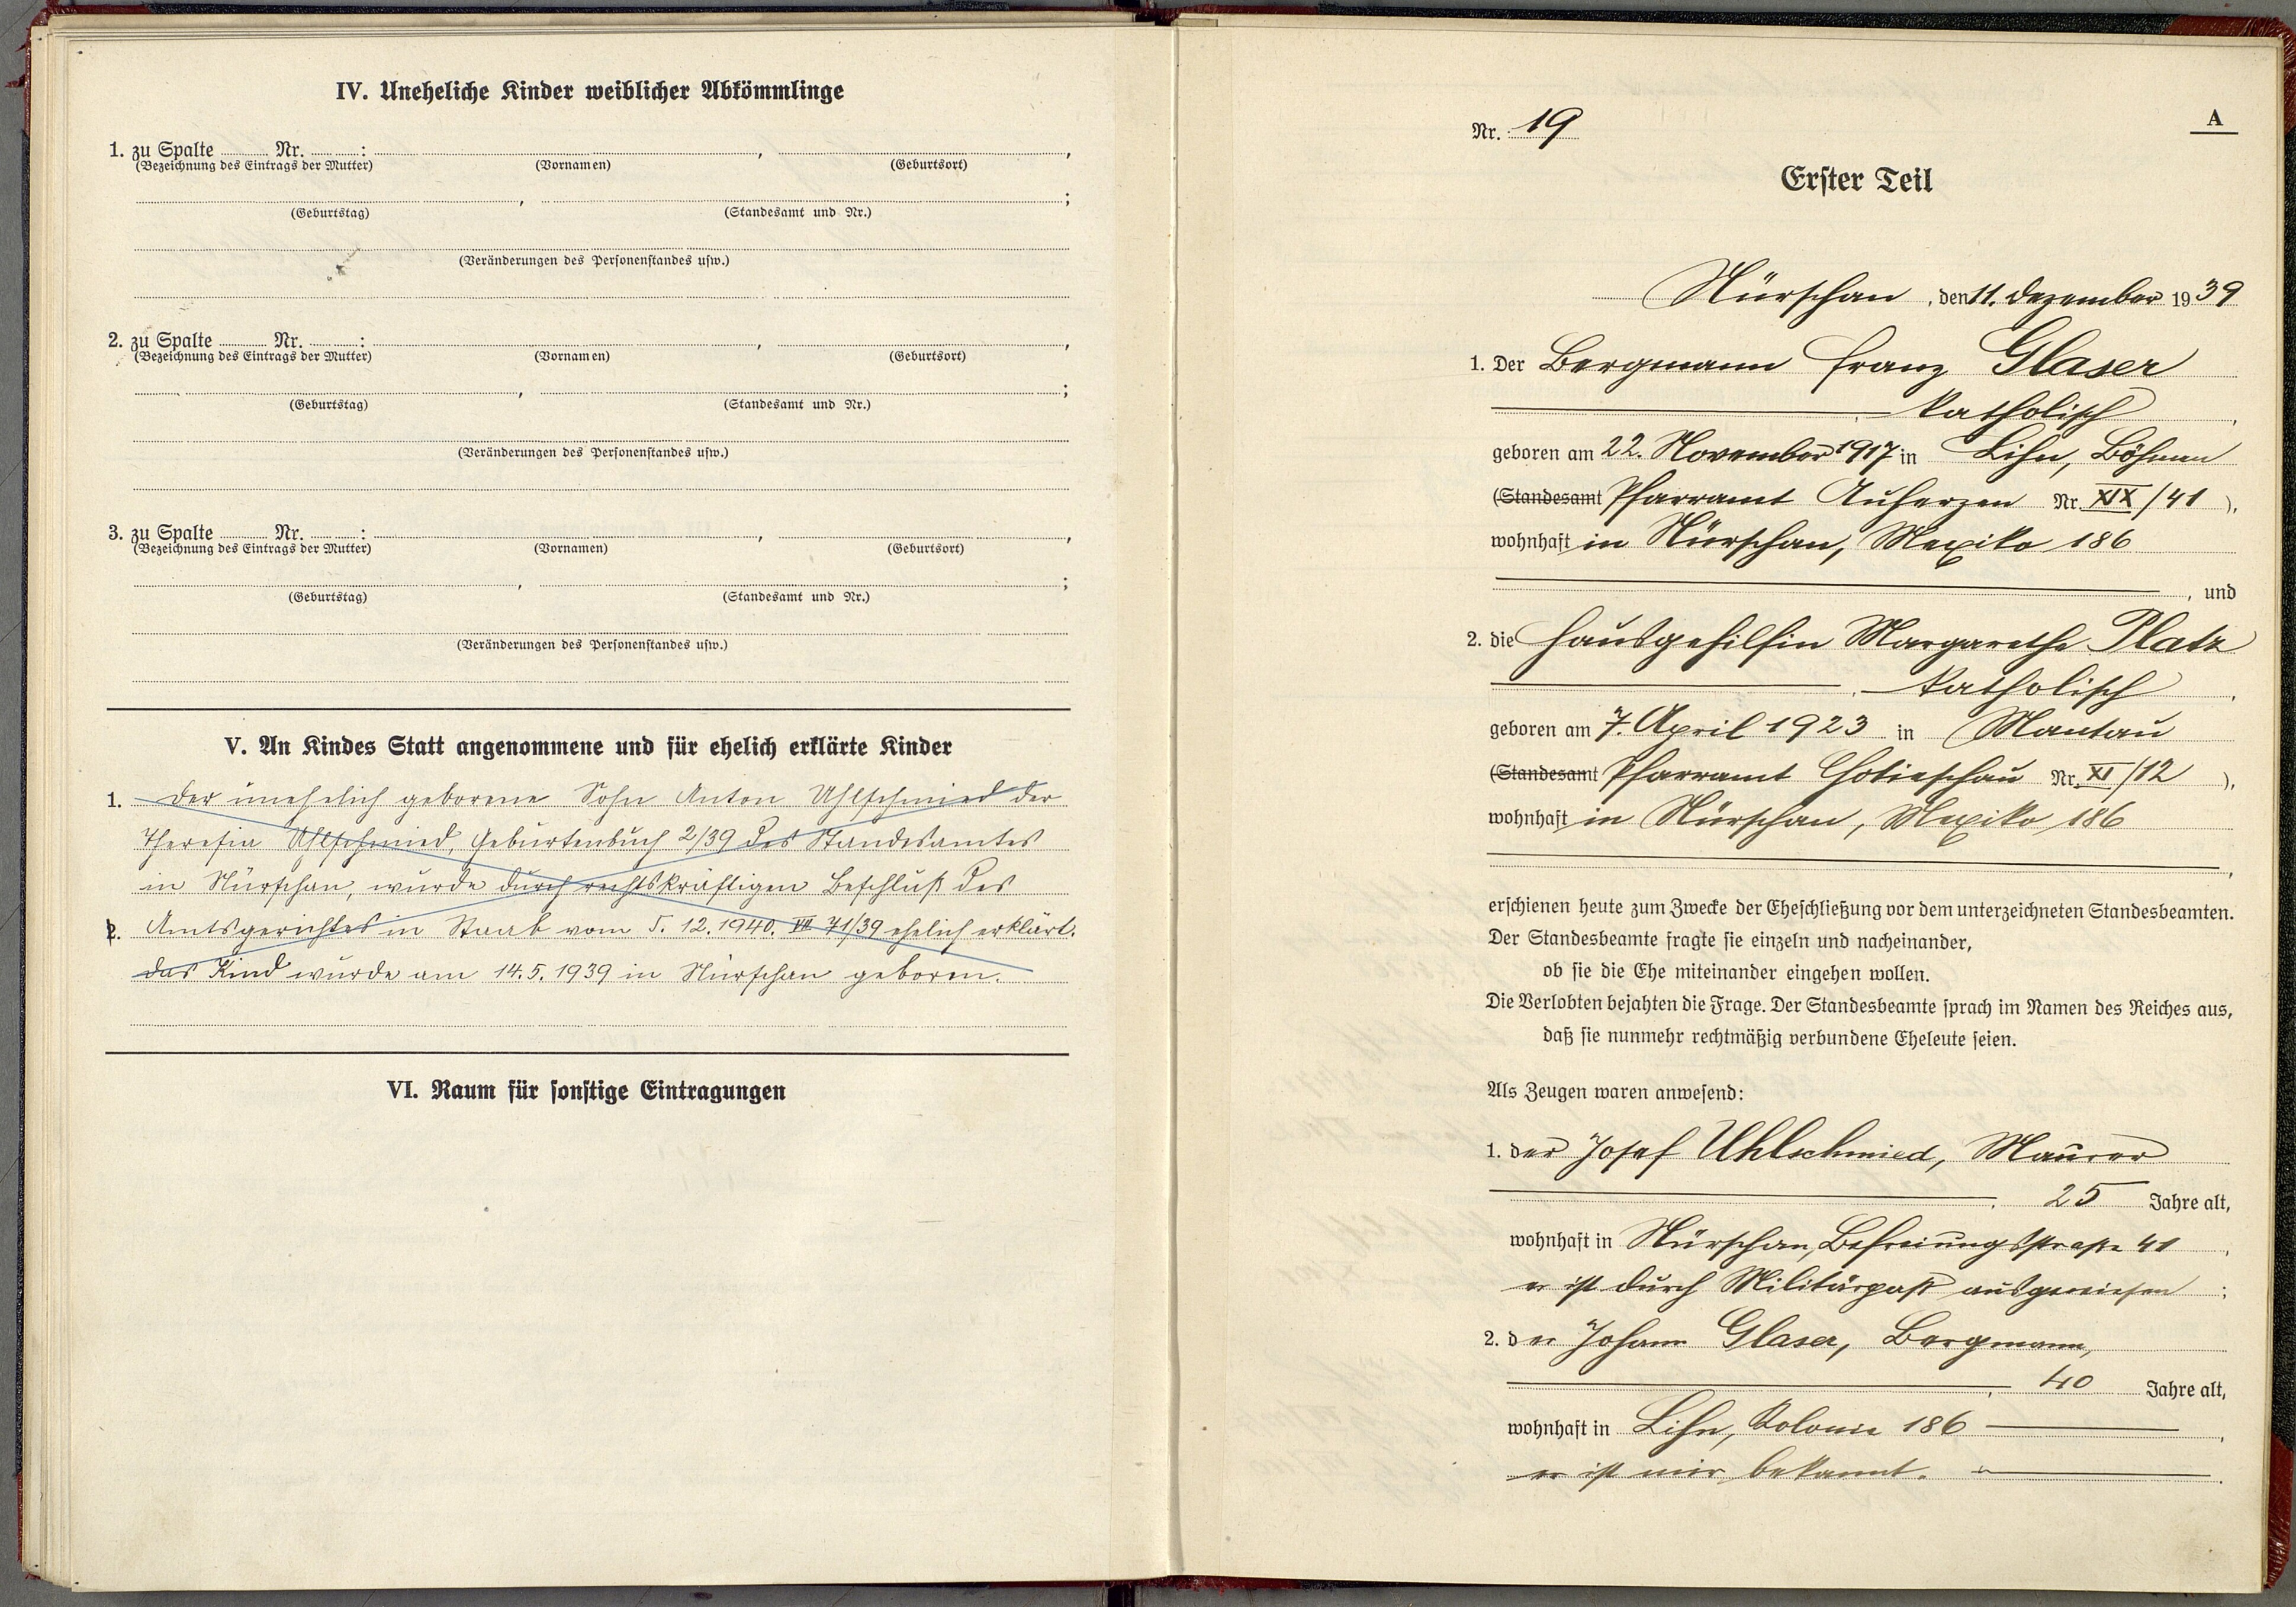 IV. Uneheliche Kinder weiblicher Abkömmlinge
1. zu Spalte Nr. : , ,
(Bezeichnung des Eintrags der Mutter) (Vornamen) (Geburtsort)
, ;
(Geburtstag) (Standesamt und Nr.)
(Veränderungen des Personenstandes usw.)
2. zu Spalte Nr. : , ,
(Bezeichnung des Eintrags der Mutter) (Vornamen) (Geburtsort)
, ;
(Geburtstag) (Standesamt und Nr.)
(Veränderungen des Personenstandes usw.)
3. zu Spalte Nr. : , ,
(Bezeichnung des Eintrags der Mutter) (Vornamen) (Geburtsort)
, ;
(Geburtstag) (Standesamt und Nr.)
(Veränderungen des Personenstandes usw.)
V. An Kindes Statt angenommene und für ehelich erklärte Kinder
1. Der unehelich geborene Sohn Anton Uhlschmied der
Theresia Uhlschmied, Geburtenbuch 2/39 des Standesamtes
in Nürschan, wurde durch rechtskräftigen Beschluß des
2. Amtsgerichtes in Staab vom 5. 12. 1940. VIII 71/39 ehelich erklärt.
Das Kind wurde am 14. 5. 1939 in Nürschan geboren.
VI. Raum für sonstige Eintragungen
A
Nr. 19
Erster Teil
Nürschan, den 11. Dezember 1939
1. Der Bergmann Franz Glaser
, katholisch,
geboren am 22. November 1917 in Lihn, Böhmen
(Standesamt Pfarramt Auherzen Nr. XIX/41 ),
wohnhaft in Nürschan, Mexiko 186
, und
2. die Hausgehilfin Margarethe Platz
, katholisch,
geboren am 7. April 1923 in Mantau
(Standesamt Pfarramt Chotieschau Nr. XI/12 ),
wohnhaft in Nürschan, Mexiko 186
,
erschienen heute zum Zwecke der Eheschließung vor dem unterzeichneten Standesbeamten.
Der Standesbeamte fragte sie einzeln und nacheinander,
ob sie die Ehe miteinander eingehen wollen.
Die Verlobten bejahten die Frage. Der Standesbeamte sprach im Namen des Reiches aus,
daß sie nunmehr rechtmäßig verbundene Eheleute seien.
Als Zeugen waren anwesend:
1. der Josef Uhlschmied, Maurer
, 25 Jahre alt,
wohnhaft in Nürschan, Befreiungsstraße 41,
er ist durch Militärpaß ausgewiesen ;
2. der Johann Glaser, Bergmann,
, 40 Jahre alt,
wohnhaft in Lihn, Kolonie 186 ,
er ist mir bekannt. .